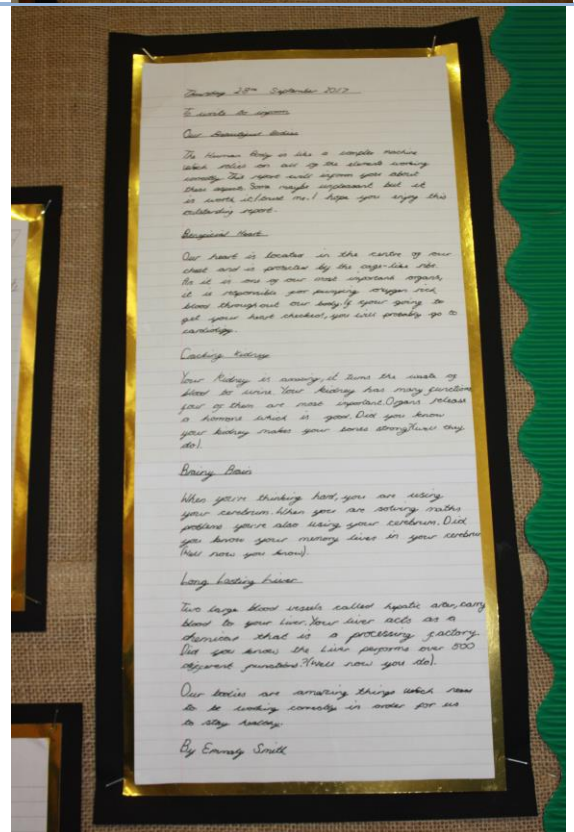 Thursday 28th September 2017
To write to inform
Our Beautiful Bodies
The Human Body is like a complex machine
which relies on all of the elements working
correctly. This report will inform you about
these aspects. Some maybe unpleasant but it
is worth it (trust me). I hope you enjoy this
outstanding report.
Beneficial Heart
Our heart is located in the centre of our
chest and is protected by the cage-like ribs.
As it is one of our most important organs,
it is responsible for pumping oxygen rich
blood throughout our body. If your going to
get your heart checked, you will probably go to
cardiology.
Kidney
Your Kidney is amazing, it turns the waste of
blood to urine. Your kidney has many functions
four of them are most important. Organs release
a hormone which is good. Did you know
your kidney makes your bones strong? (well they
do).
Brainy Brain
When you're thinking hard, you are using
your cerebrum. When you are solving maths
problems you're also using your cerebrum. Did
you know your memory lives in your cerebrum
(Well now you know).
Long Lasting Liver
Two large blood vessels called hepatic carry
blood to your Liver. Your liver acts as a
chemical that is a processing factory.
Did you know the Liver performs over 500
different functions? (Well now you do).
Our bodies are amazing things which need
to be working correctly in order for us
to stay healthy.
By Emmaly Smith